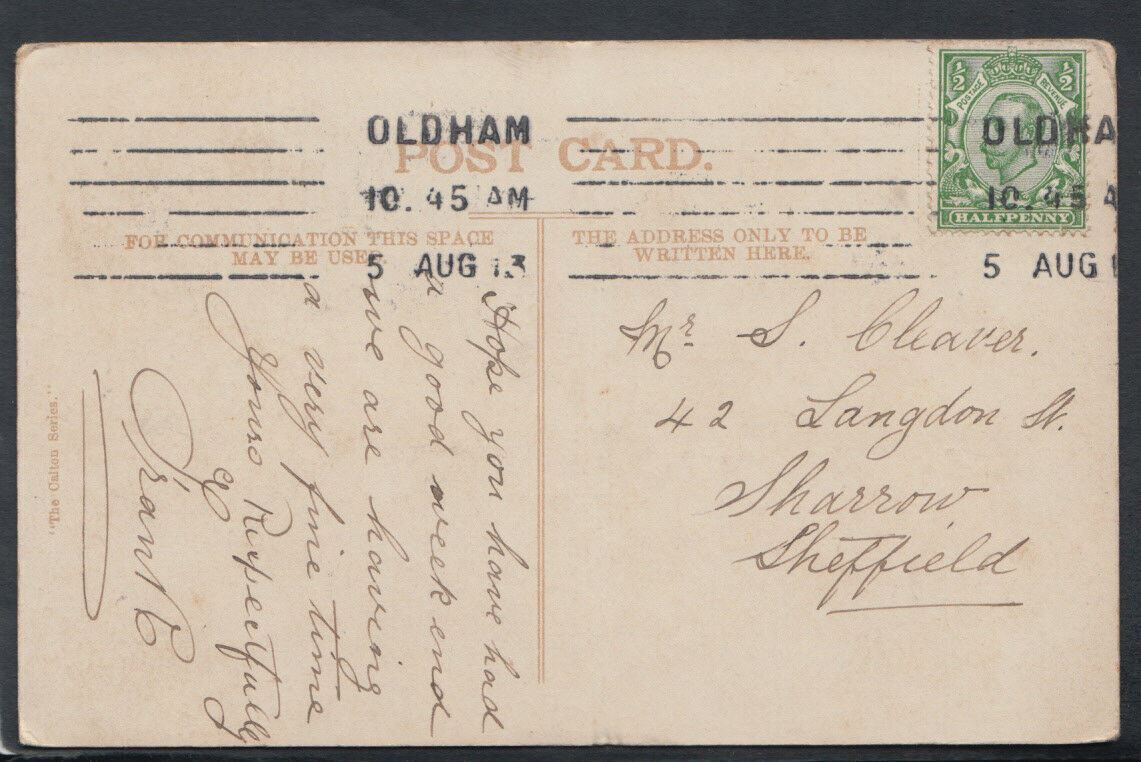 OLDHAM
10.45 AM
5 AUG 13
OLDHA
10.45 A
5 AUG 1
½ ½
POSTAGE REVENUE
HALFPENNY
POST CARD.
FOR COMMUNICATION THIS SPACE
MAY BE USED
THE ADDRESS ONLY TO BE
WRITTEN HERE.
Hope you have had
a good week end
we are having
a very fine time
Yours Respectfully
Mr S. Cleaver.
42 Langdon St.
Sharrow
Sheffield
"The Calton Series."